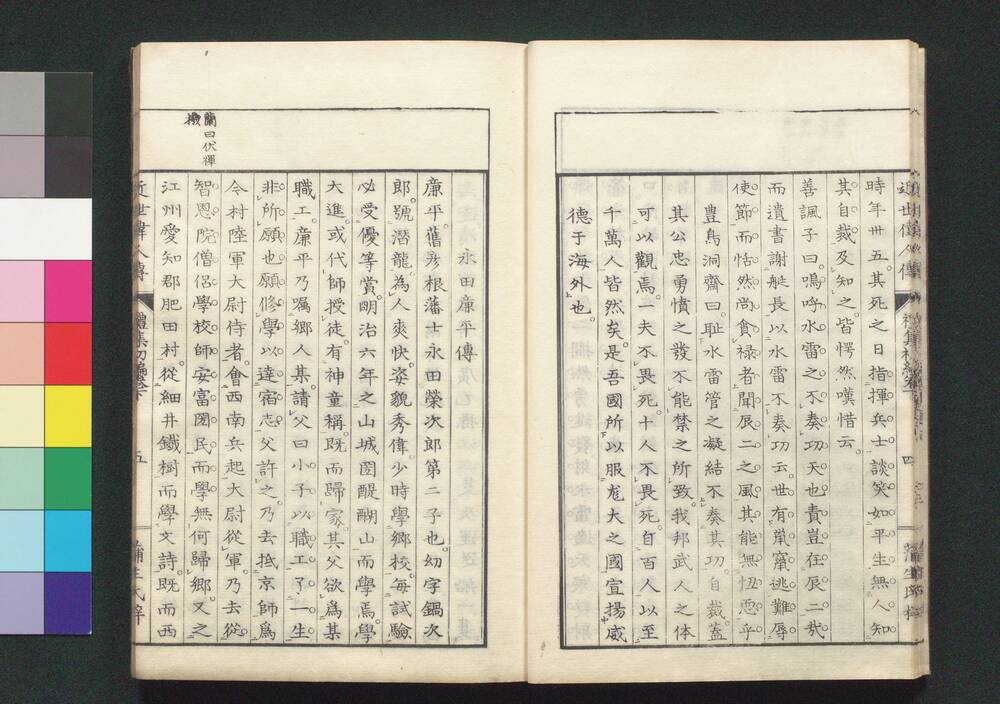 時年卅五。其死之日指揮兵士談笑如平生無人知
其自裁及知之皆愕然嘆惜云。
善諷子曰。嗚呼水雷之不奏功天也責豈在辰二哉
而遺書謝艇長以水雷不奏功云。世有鼠竄逃難辱
使節而恬然尚貪祿者聞辰二之風其能無忸怩乎
豊島洞齋曰。耻水雷管之凝結不奏其功自裁。蓋
其公忠勇憤之發不能禁之所致。我邦武人之体
可以觀焉。一夫不畏死十人不畏死。自百人以至
千萬人皆然矣。是吾國所以服尨大之國宣揚威
德于海外也。
永田廉平傳
廉平舊彥根藩士永田榮次郎第二子也。幼字鍋次
郎。號潛龍為人爽快。姿貌秀偉。少時學鄉校。每試驗
必受優等賞。明治六年之山城國醍醐山而學焉。學
大進。或代師授徒。有神童稱。既而歸家。其父欲為某
職工。廉平乃囑鄉人某請父曰。小子以職工了一生。
非所願也。願修學以達宿志。父許之。乃去抵京師為
令村陸軍大尉侍者。會西南兵起大尉從軍。乃去從
智恩院僧侶學校師安富國民而學無何歸鄉。又之
江州愛知郡肥田村。從細井鐵樹而學文詩。既而西
近世偉人傳
禮集初編卷下
五
蒲生氏梓
蘭曰伏禪
近世偉人傳
禮集初編卷下
四
蒲生氏梓